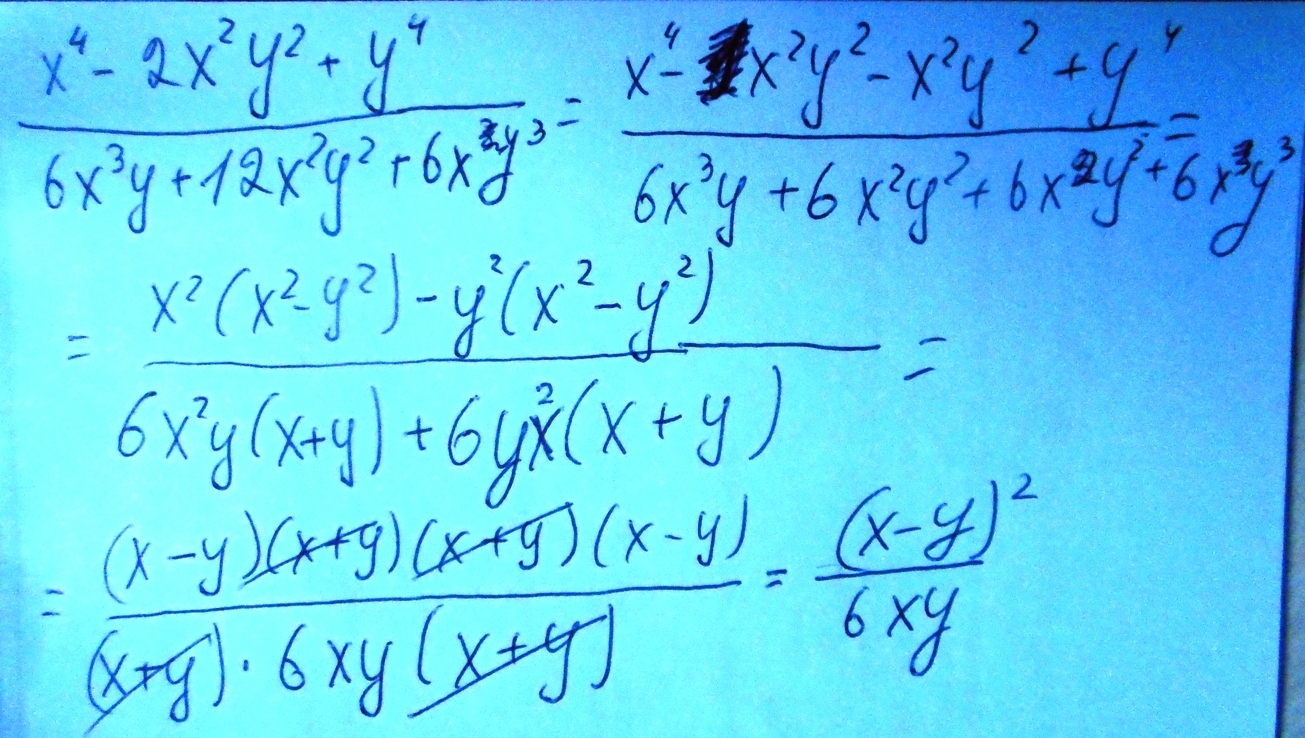 x⁴ - 2x²y² + y⁴ / 6x³y + 12x²y² + 6xy³ = x⁴ - x²y² - x²y² + y⁴ / 6x³y + 6x²y² + 6x²y² + 6x³y³ =
= x²(x² - y²) - y²(x² - y²) / 6x²y(x+y) + 6y²x(x + y) =
= (x - y)(x+y)(x+y)(x - y) / (x+y) · 6xy(x+y) = (x - y)² / 6xy